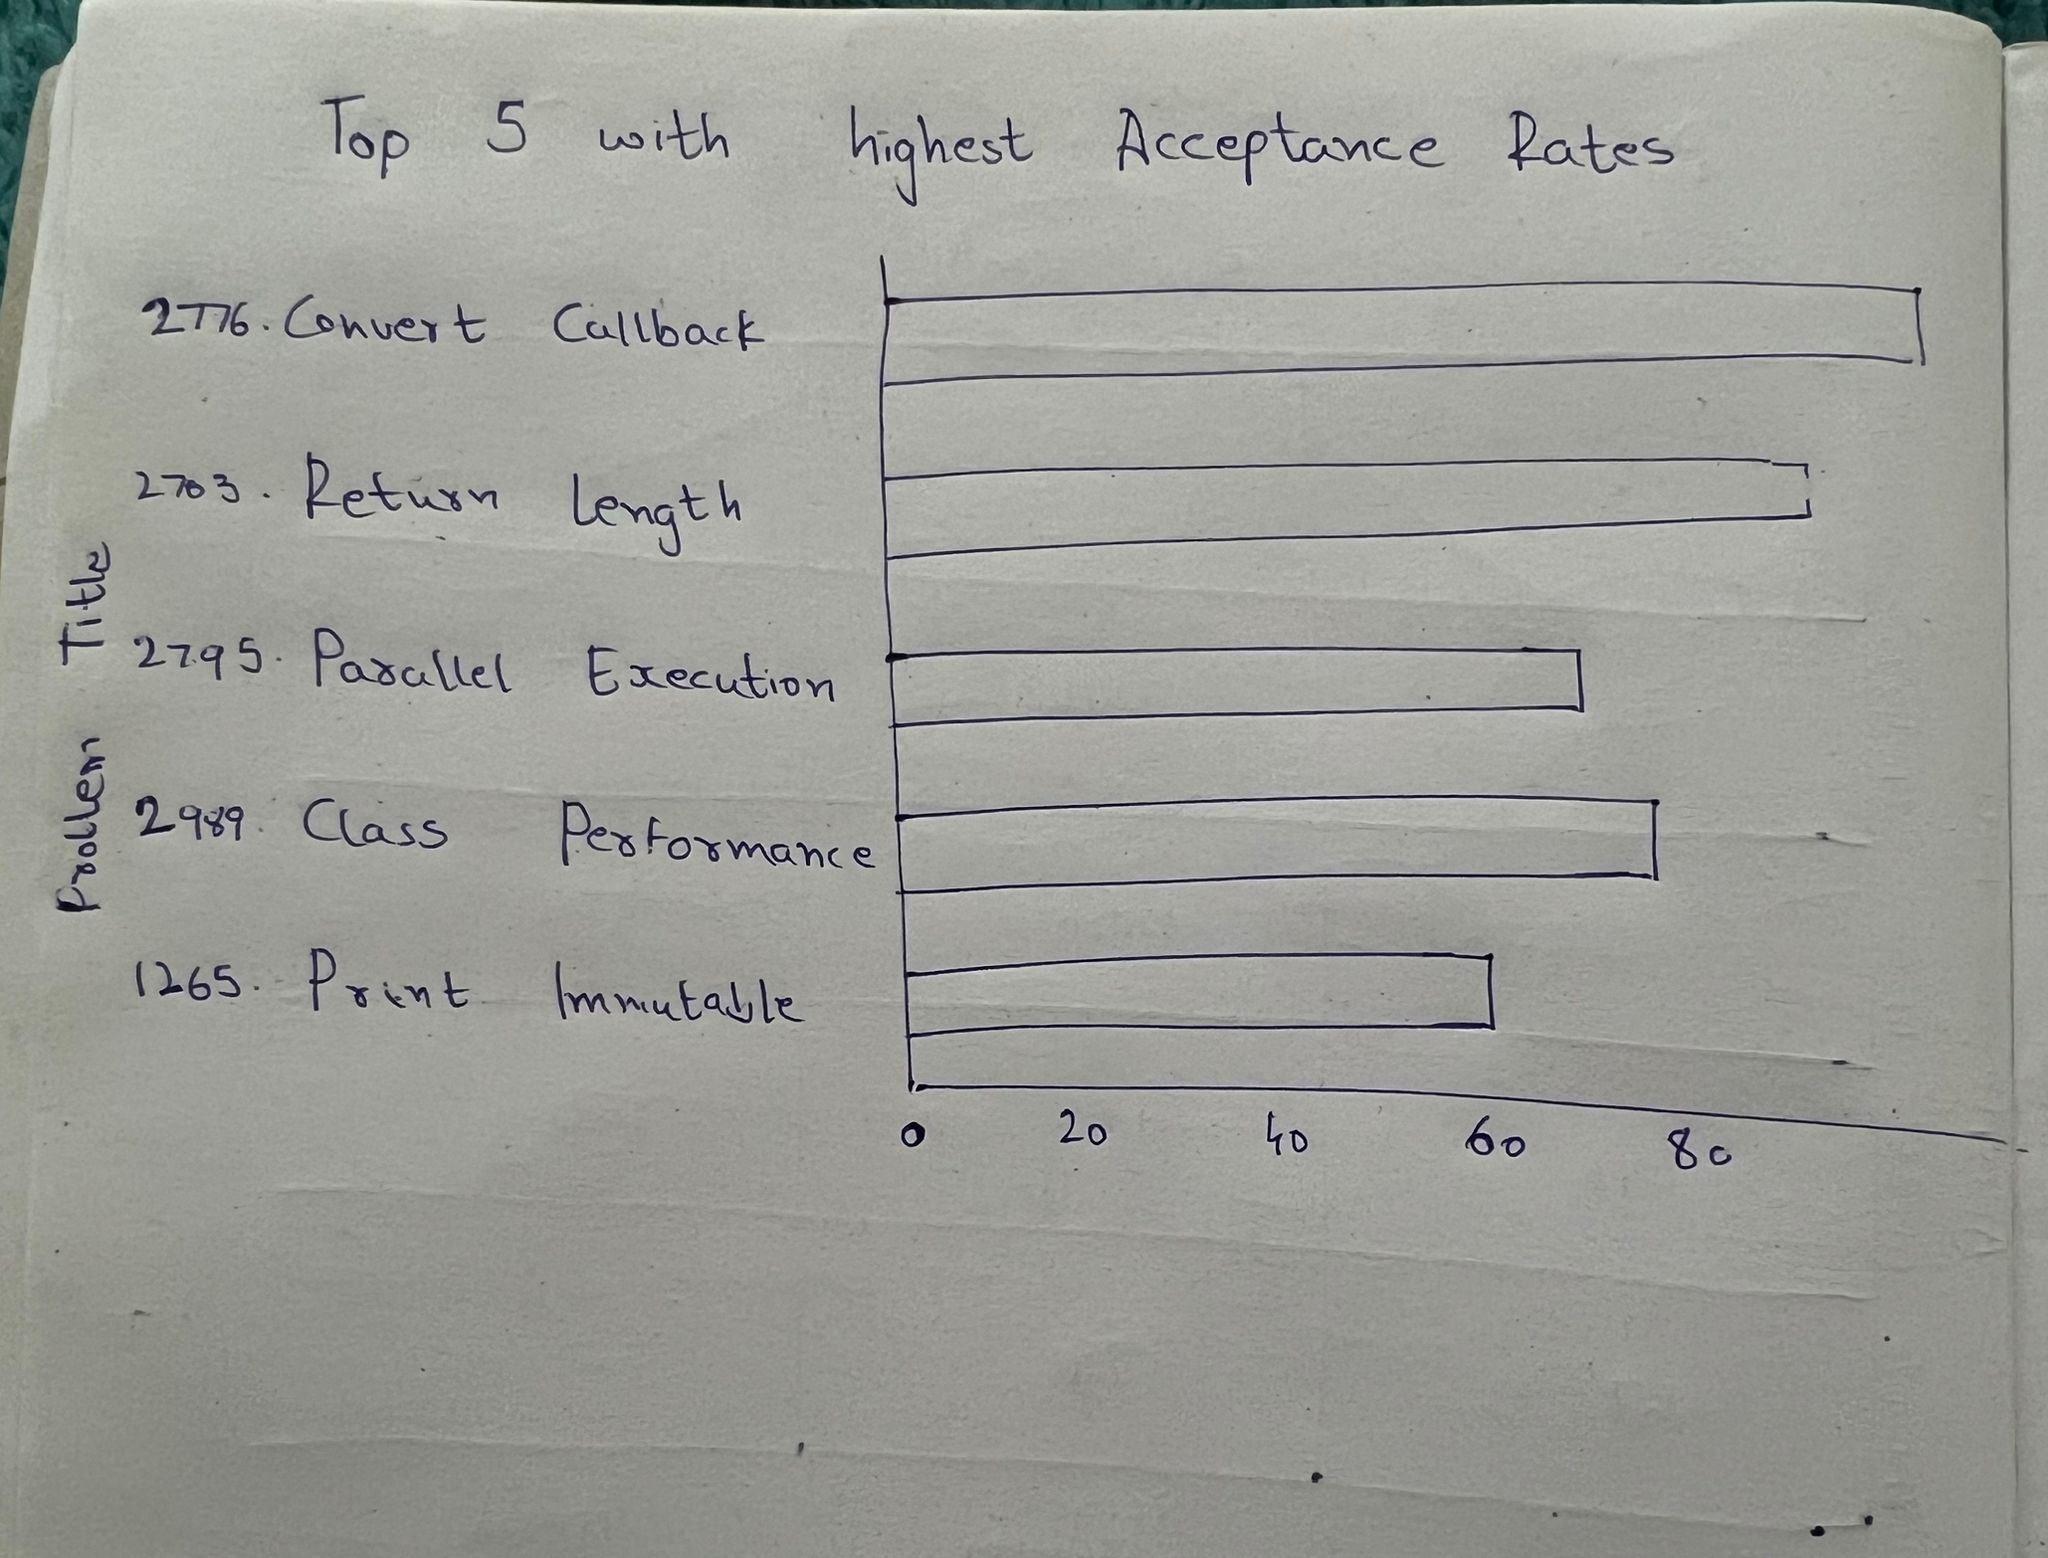 Top 5 with highest Acceptance Rates
2776. Convert Callback
2703. Return Length
2795. Parallel Execution
2989. Class Performance
1265. Print Immutable
Problem Title
0 20 40 60 80